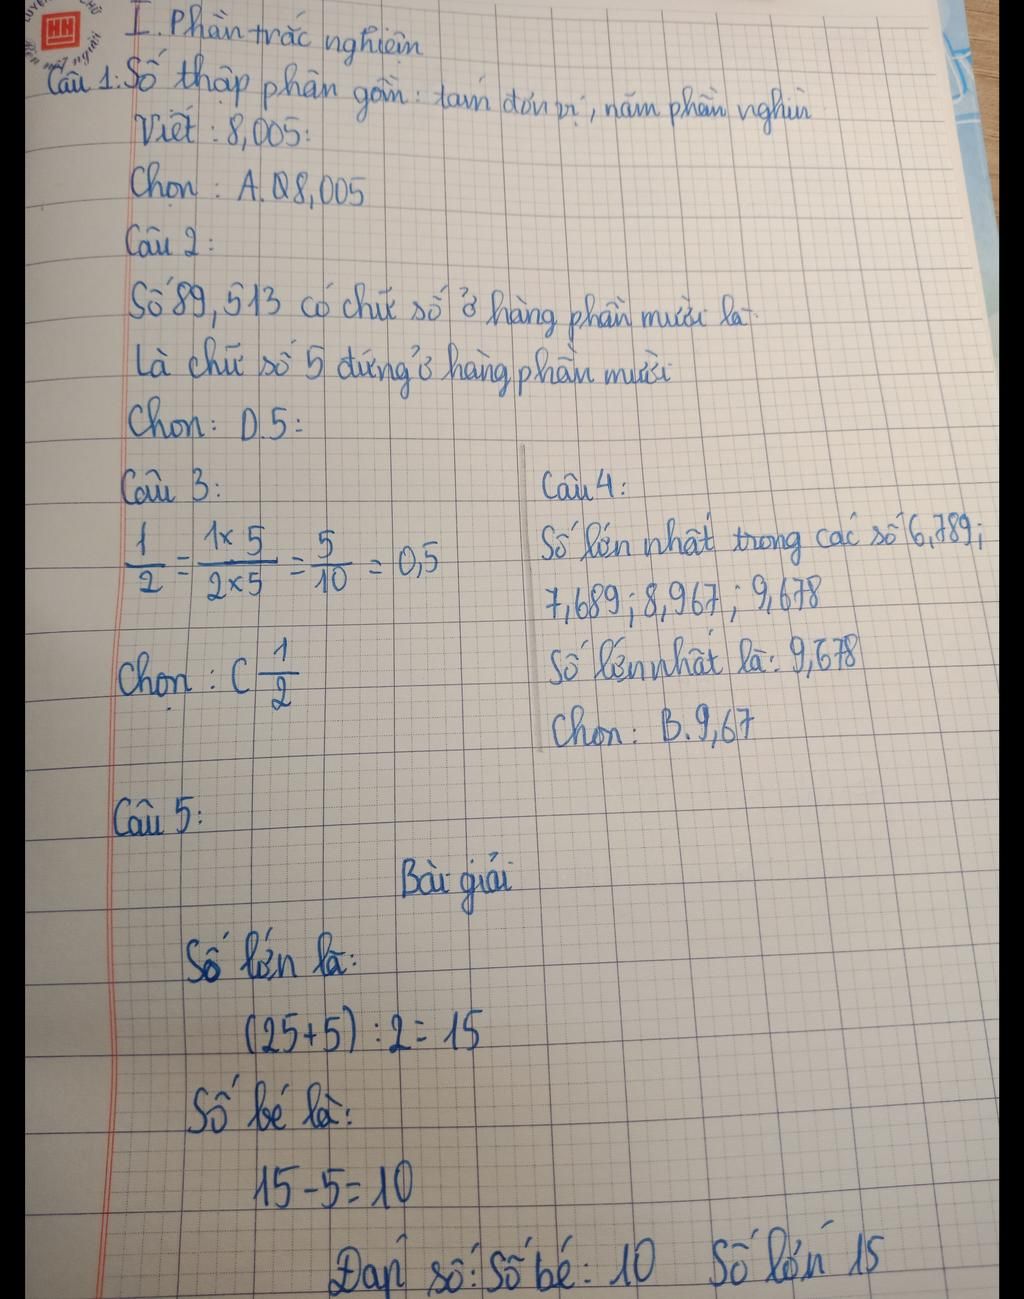 I. Phần trắc nghiệm
Câu 1: Số thập phân gồm: tám đơn vị, năm phần nghìn
Viết: 8,005:
Chọn: A. 8,005
Câu 2:
Số 89,513 có chữ số ở hàng phần mười là
Là chữ số 5 đứng ở hàng phần mười
Chọn: D.5:
Câu 3:
1/2 = 1×5/2×5 = 5/10 = 0,5
Chọn: C 1/2
Câu 4:
Số lớn nhất trong các số 6,789;
7,689; 8,967; 9,678
Số lớn nhất là: 9,678
Chọn: B. 9,67
Câu 5:
Bài giải
Số lớn là:
(25+5) : 2 = 15
Số bé là:
15 - 5 = 10
Đáp số: Số bé: 10 Số lớn 15
HH